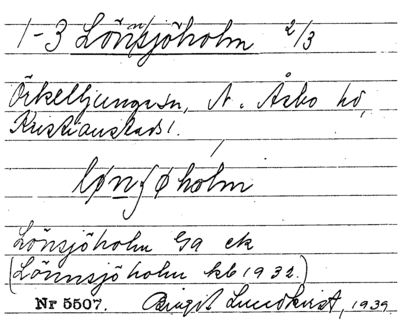 1-3 Lönnsjöholm 2/3
Örkelljunga sn, N. Åsbo hd,
Kristianstads l.
lønʃøhòlm
Lönsjöholm Ga ek
(Lönnsjöholm kb 1932.)
Nr 5507. Birgit Lundkvist, 1939.